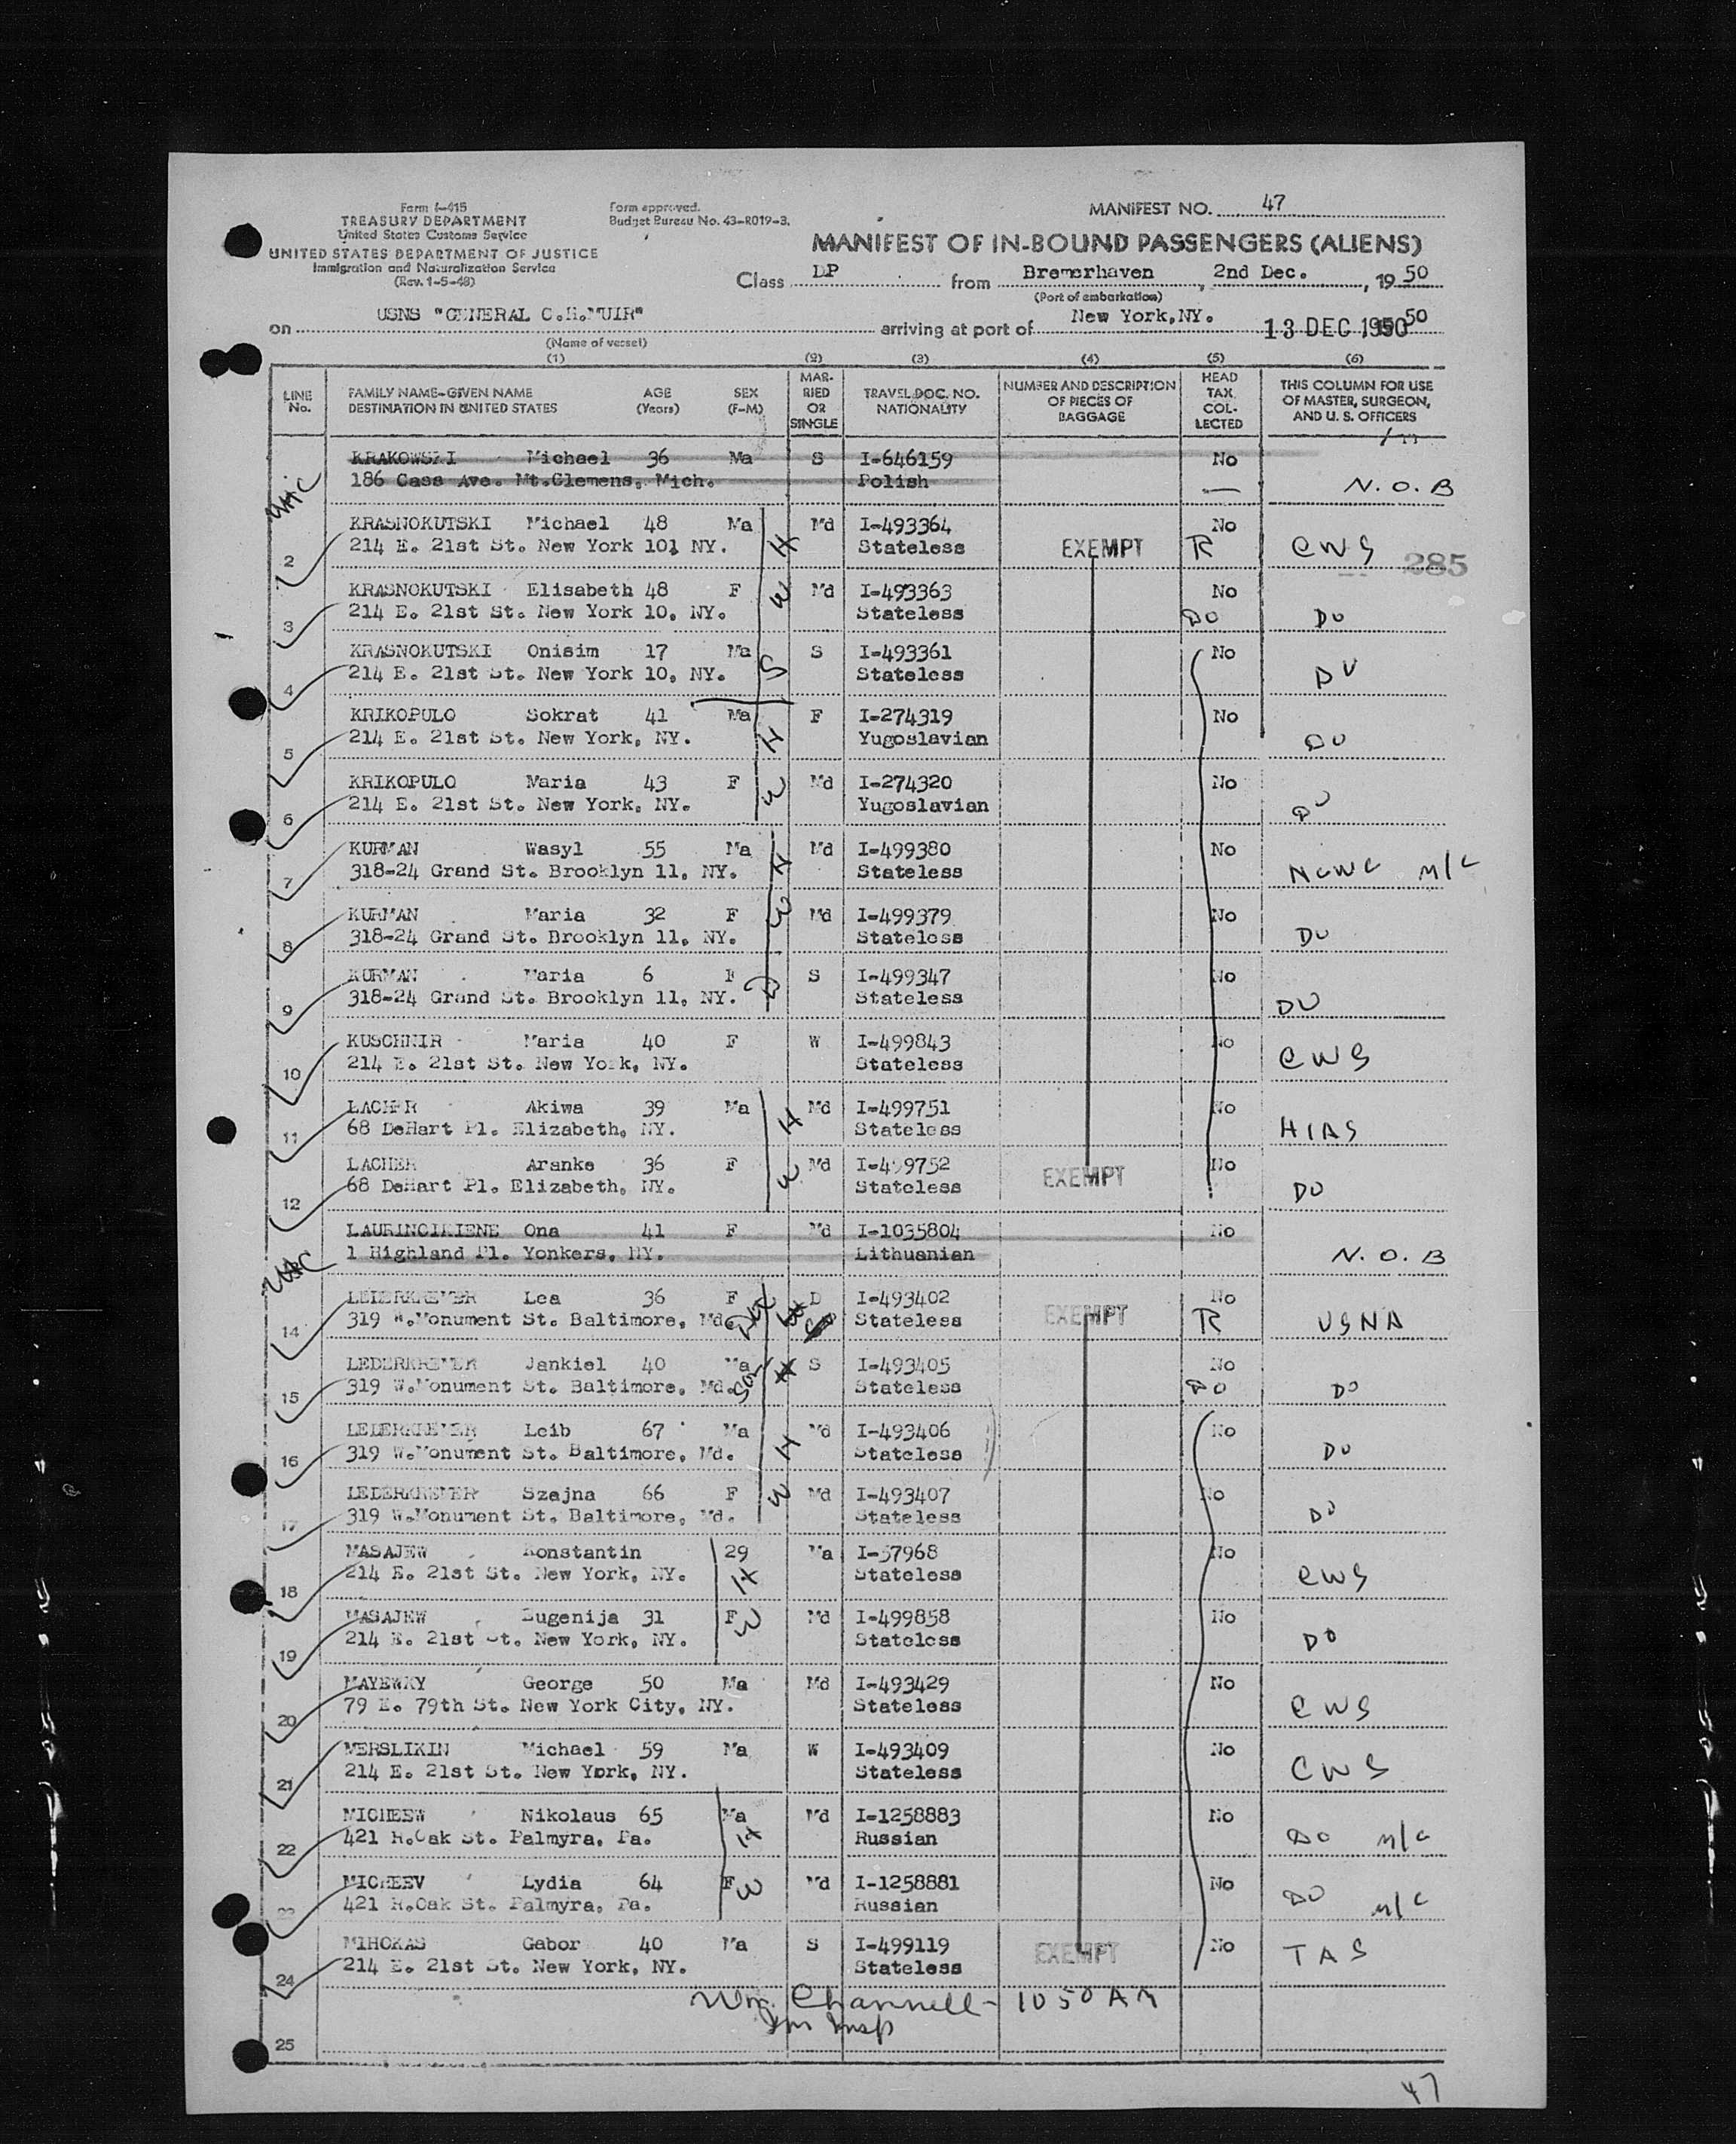 Form I-415
TREASURY DEPARTMENT
United States Customs Service
UNITED STATES DEPARTMENT OF JUSTICE
Immigration and Naturalization Service
(Rev. 1-5-48)
Form approved.
Budget Bureau No. 43-R019-3.
MANIFEST NO. 47
MANIFEST OF IN-BOUND PASSENGERS (ALIENS)
Class DP from Bremerhaven, 2nd Dec., 1950
(Port of embarkation)
on USNS "GENERAL C.H.MUIR" arriving at port of New York,NY. 13 DEC 1950 50
(Name of vessel)
(1) (2) (3) (4) (5) (6)
LINE No. FAMILY NAME-GIVEN NAME DESTINATION IN UNITED STATES AGE (Years) SEX (F-M) MARRIED OR SINGLE TRAVEL DOC. NO. NATIONALITY NUMBER AND DESCRIPTION OF PIECES OF BAGGAGE HEAD TAX COLLECTED THIS COLUMN FOR USE OF MASTER, SURGEON, AND U. S. OFFICERS
KRAKOWSKI Michael 36 Ma S I-646159 No
186 Cass Ave. Mt.Clemens, Mich. Polish N.O.B
KRASNOKUTSKI Michael 48 Ma H Md I-493364 No
2 214 E. 21st St. New York 10, NY. Stateless EXEMPT R CWS 285
KRASNOKUTSKI Elisabeth 48 F W Md I-493363 No
3 214 E. 21st St. New York 10, NY. Stateless DO DO
KRASNOKUTSKI Onisim 17 Ma S S I-493361 No
4 214 E. 21st St. New York 10, NY. Stateless DO
KRIKOPULO Sokrat 41 Ma H F I-274319 No
5 214 E. 21st St. New York, NY. Yugoslavian DO
KRIKOPULO Maria 43 F W Md I-274320 No
6 214 E. 21st St. New York, NY. Yugoslavian DO
KURMAN Wasyl 55 Ma H Md I-499380 No
7 318-24 Grand St. Brooklyn 11, NY. Stateless NCWC M/C
KURMAN Maria 32 F W Md I-499379 No
8 318-24 Grand St. Brooklyn 11, NY. Stateless DO
KURMAN Maria 6 F D S I-499347 No
9 318-24 Grand St. Brooklyn 11, NY. Stateless DO
KUSCHNIR Maria 40 F W I-499843 No
10 214 E. 21st St. New York, NY. Stateless CWS
LACHER Akiwa 39 Ma H Md I-499751 No
11 68 DeHart Pl. Elizabeth, NY. Stateless HIAS
LACHER Aranke 36 F W Md I-499752 No
12 68 DeHart Pl. Elizabeth, NY. Stateless EXEMPT DO
LAURINCIKIENE Ona 41 F Md I-1035804 No
1 Highland Pl. Yonkers, NY. Lithuanian N.O.B
LEDERKREMER Lea 36 F D I-493402 No
14 319 W.Monument St. Baltimore, Md. Stateless EXEMPT R USNA
LEDERKREMER Jankiel 40 Ma Son S I-493405 No
15 319 W.Monument St. Baltimore, Md. Stateless DO DO
LEDERKREMER Leib 67 Ma H Md I-493406 No
16 319 W.Monument St. Baltimore, Md. Stateless DO
LEDERKREMER Szajna 66 F W Md I-493407 No
17 319 W.Monument St. Baltimore, Md. Stateless DO
MASAJEW Konstantin 29 H Ma I-57968 No
18 214 E. 21st St. New York, NY. Stateless CWS
MASAJEW Eugenija 31 F W Md I-499858 No
19 214 E. 21st St. New York, NY. Stateless DO
MAYEWKY George 50 Ma Md I-493429 No
20 79 E. 79th St. New York City, NY. Stateless CWS
MERSLIKIN Michael 59 Ma W I-493409 No
21 214 E. 21st St. New York, NY. Stateless CWS
MICHEEW Nikolaus 65 Ma H Md I-1258883 No
22 421 H.Oak St. Palmyra, Pa. Russian DO M/C
MICHEEV Lydia 64 F W Md I-1258881 No
23 421 H.Oak St. Palmyra, Pa. Russian DO M/C
MIHOKAS Gabor 40 Ma S I-499119 No
24 214 E. 21st St. New York, NY. Stateless EXEMPT TAS
Wm. Channell - 1050 AM
Im Insp
25
47